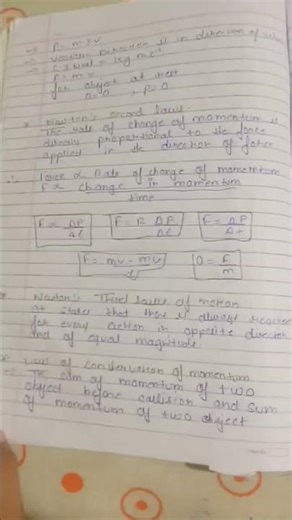 → P = m × v
→ Vector. Direction is in direction of
→ S.I unit = kg ms⁻¹
P = mv
for object at rest
v = 0 , P = 0
* Newton's Second law:-
The rate of change of momentum is
directly proportional to the force
applied in the direction of force
∴ force ∝ Rate of change of momentum
F ∝ Change in momentum
time
F ∝ ΔP/Δt F = k ΔP/Δt F = ΔP/Δt
F = mv - mu/t a = F/m
* Newton's Third law of motion
It states that there is always reaction
for every action in opposite direction
and of equal magnitude.
* Law of Conservation of momentum
→ The sum of momentum of two
object before collision and sum
of momentum of two object